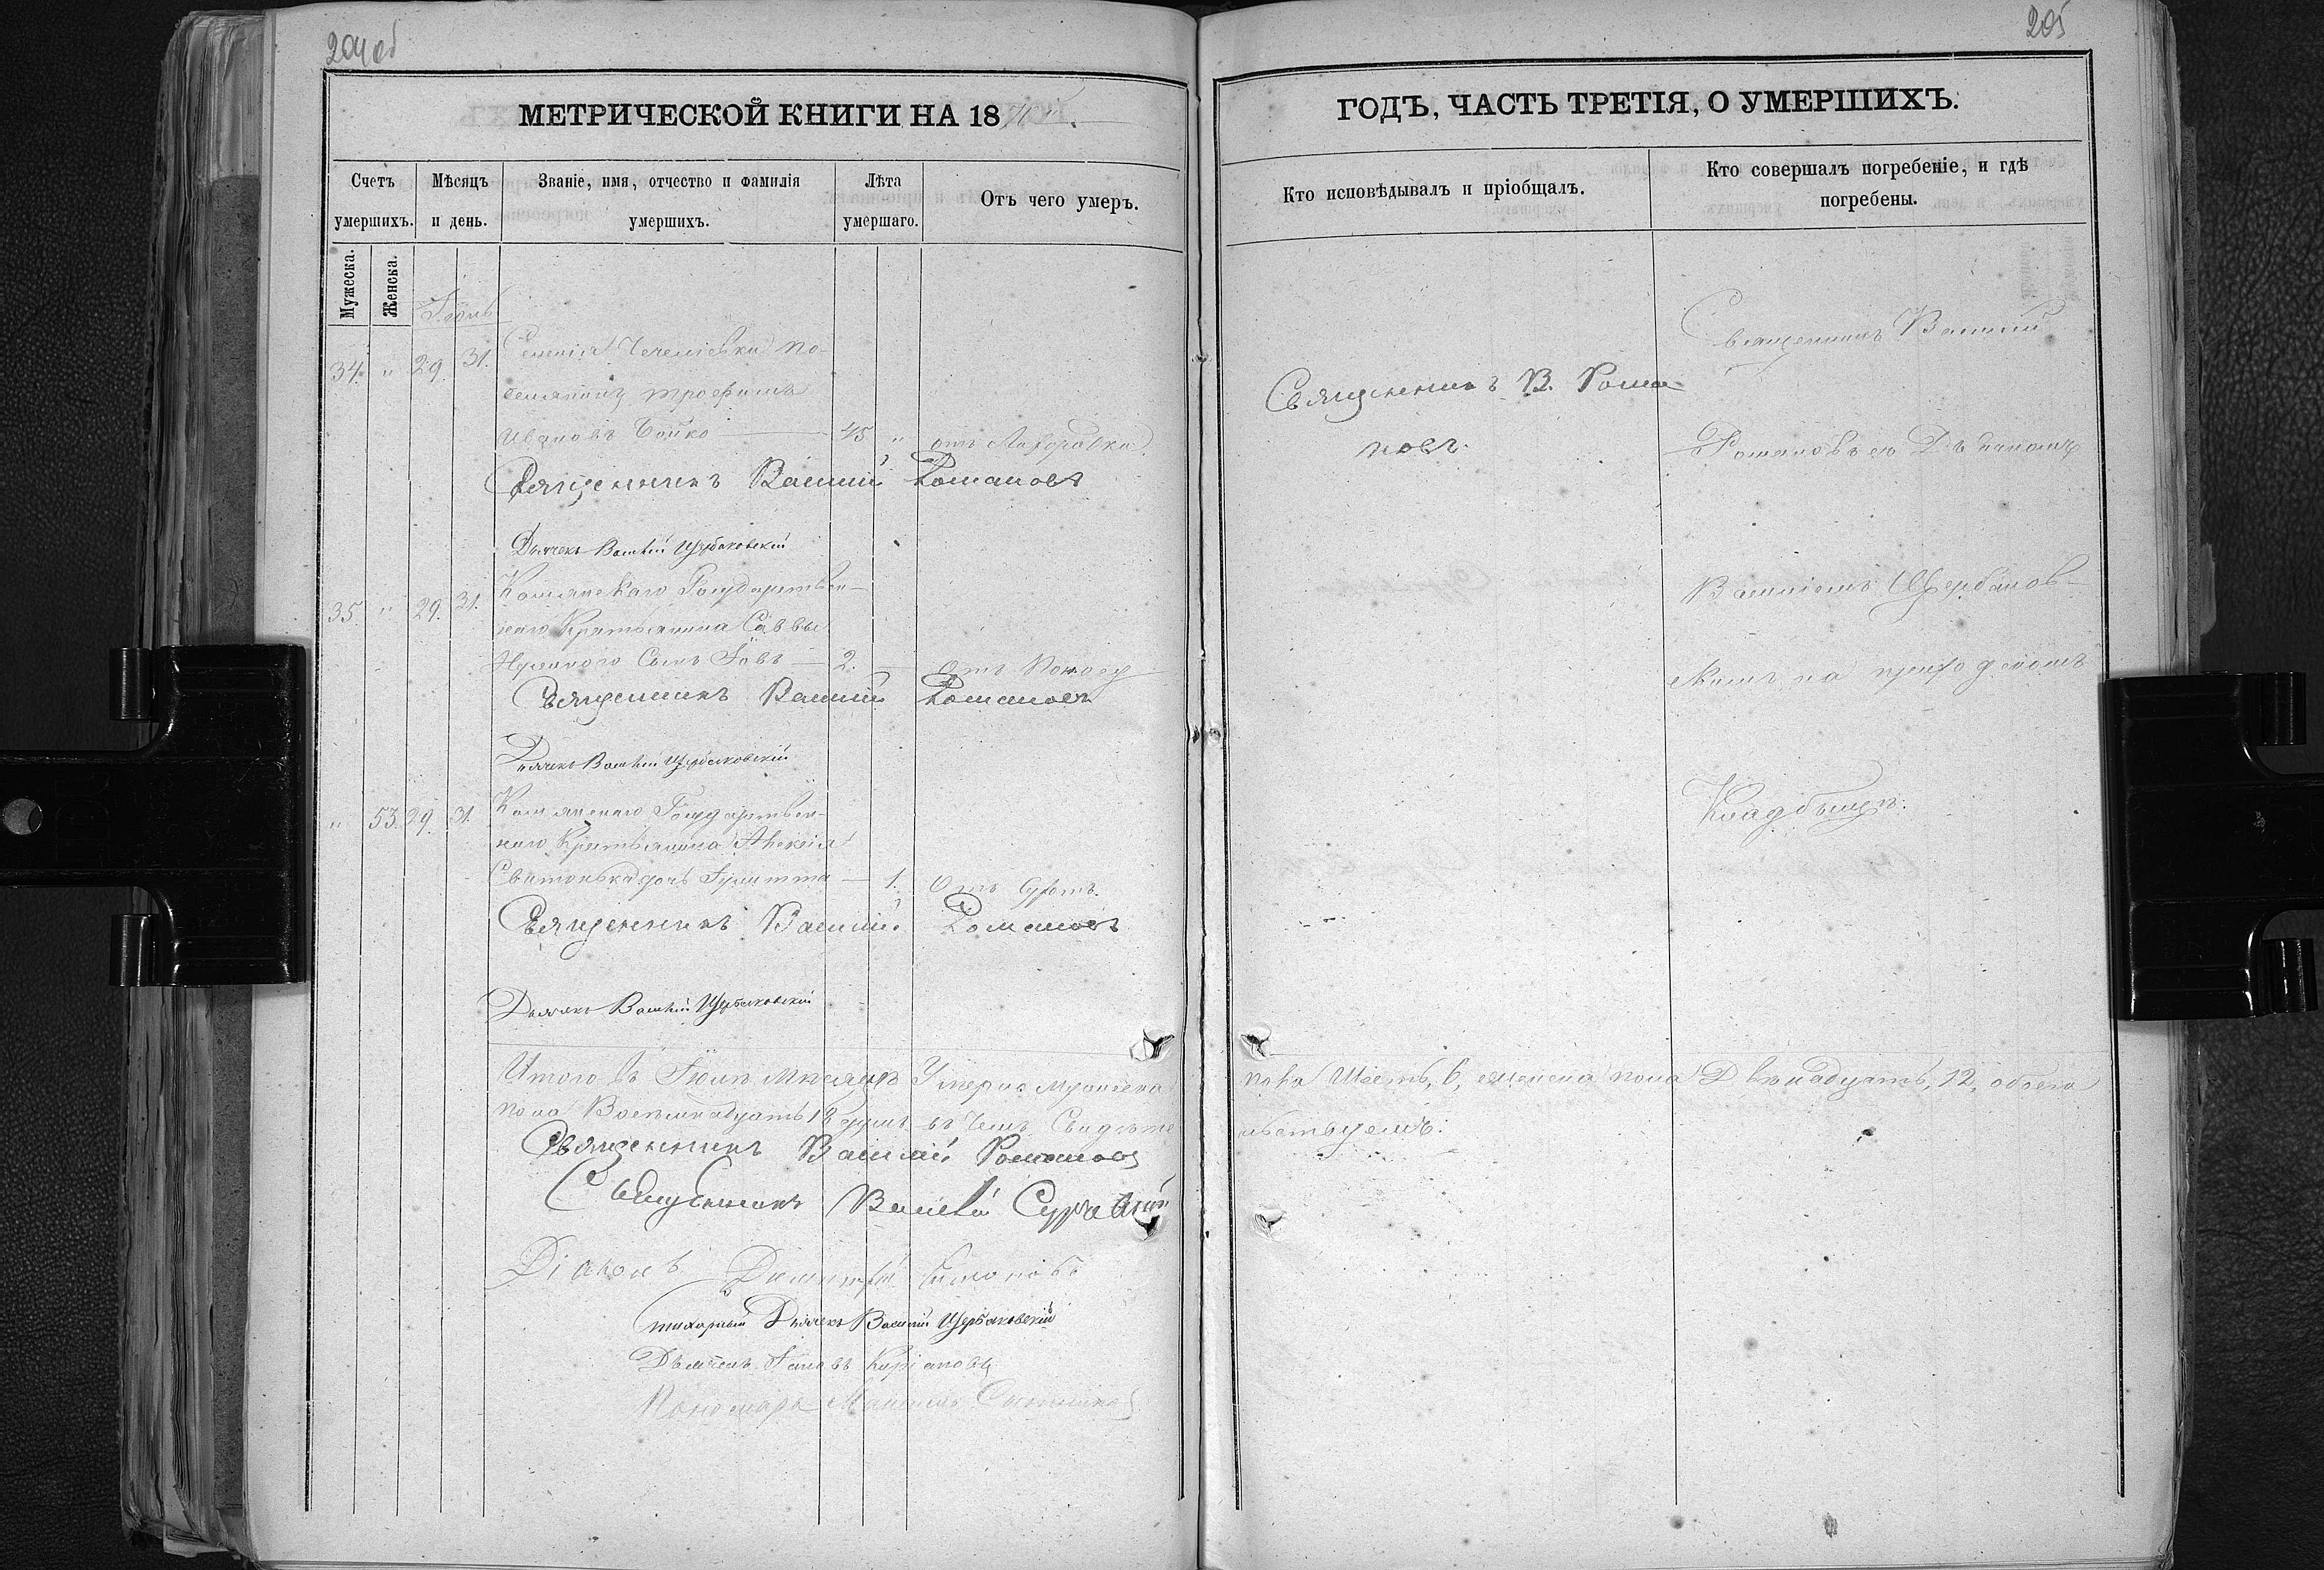 204 об
205
МЕТРИЧЕСКОЙ КНИГИ НА 18
ГОДЪ, ЧАСТЬ ТРЕТІЯ, О УМЕРШИХЪ.
Счетъ умершихъ.
Мѣсяцъ и день.
Званіе, имя, отчество и фамилія умершихъ.
Лѣта умершаго.
Отъ чего умеръ.
Кто исповѣдывалъ и пріобщалъ.
Кто совершалъ погребеніе, и гдѣ погребены.
Мужеска.
Женска.
Іюль
34. " 29. 31. Селенія по-
селянинъ Трофимъ
Ивановъ Бойко 45 " отъ Лихорадки
Священникъ Василій Романовъ
Дьячекъ Василій Щербаковскій
35. " 29. 31. Государствен-
наго Крестьянина Саввы
Сынъ Іовъ 2. Отъ
Священникъ Василій Романовъ
Дьячекъ Василій Щербаковскій
" 53. 29. 31. Государствен-
наго Крестьянина Алексія
дочь Іулитта 1. Отъ Сухотъ.
Священникъ Василій Романовъ
Дьячекъ Василій Щербаковскій
Священникъ В. Рома-
новъ.
Священникъ Василій
Романовъ съ Дьячкомъ
Василіемъ Щербаков-
скимъ на приходскомъ
Кладбищѣ.
Итого въ Іюлѣ мѣсяцѣ Умерло мужеска пола Шесть, 6, женска пола Двѣнадцать, 12, обоего
пола Восемнадцать 18 душъ въ чемъ Свидѣтельствуемъ:
Священникъ Василій Романовъ
Священникъ Василій
Діаконъ Димитрій
Стихарный Дьячекъ Василій Щербаковскій
Дьячекъ Іаковъ
Пономарь